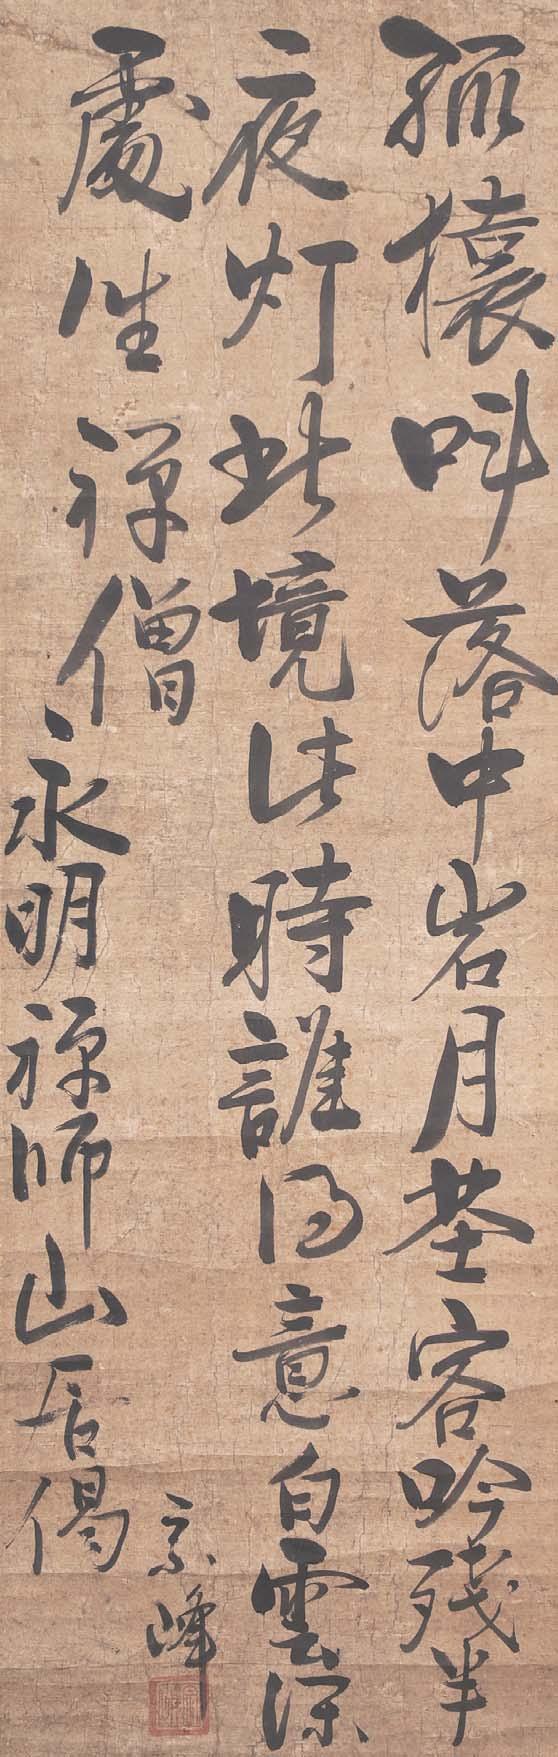 孤猿叫落中岩月埜客吟残半
夜灯此境此時誰得意白雲深
處坐禅僧
永明禅師山居偈
峰